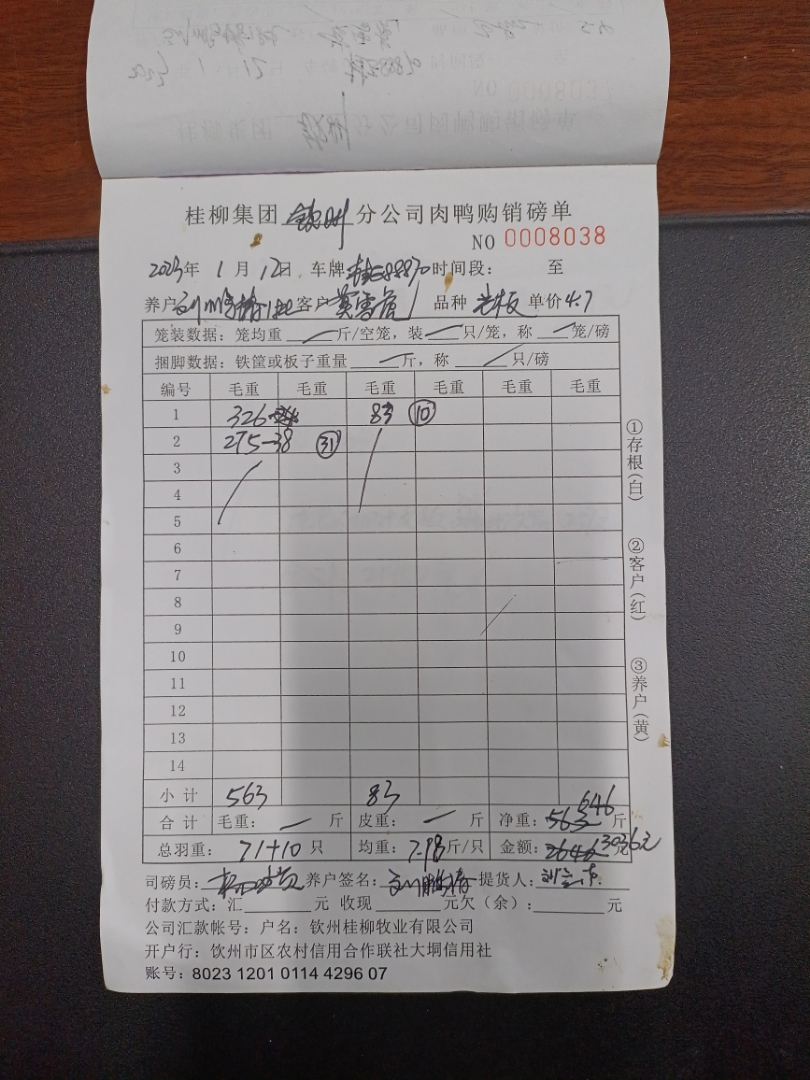 桂柳集团 钦州 分公司肉鸭购销磅单
NO 0008038
2023年 1月12日 车牌 88870 时间段: 至
养户 客户 莫雪 品种 老板 单价 4.7
笼装数据: 笼均重 斤/空笼, 装 只/笼, 称 笼/磅
捆脚数据: 铁筐或板子重量 斤, 称 只/磅
编号 毛重 毛重 毛重 毛重 毛重 毛重
1 326 83 ⑩
2 275-38 ㉛
3
4
5
6
7
8
9
10
11
12
13
14
小计 563 83
646
合计 毛重: 斤 皮重: 斤 净重: 563 斤
总羽重: 71+10 只 均重: 7.98 斤/只 金额: 2646 3036元
司磅员: 养户签名: 提货人:
付款方式: 汇 元 收现 元欠(余): 元
公司汇款帐号: 户名: 钦州桂柳牧业有限公司
开户行: 钦州市区农村信用合作联社大垌信用社
账号: 8023 1201 0114 4296 07
①存根(白)
②客户(红)
③养户(黄)